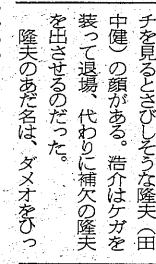 チを見るとさびしそうな隆夫（田
中健）の顔がある。浩介はケガを
装って退場、代わりに補欠の隆夫
を出させるのだった。
隆夫のあだ名は、ダメオをひっ